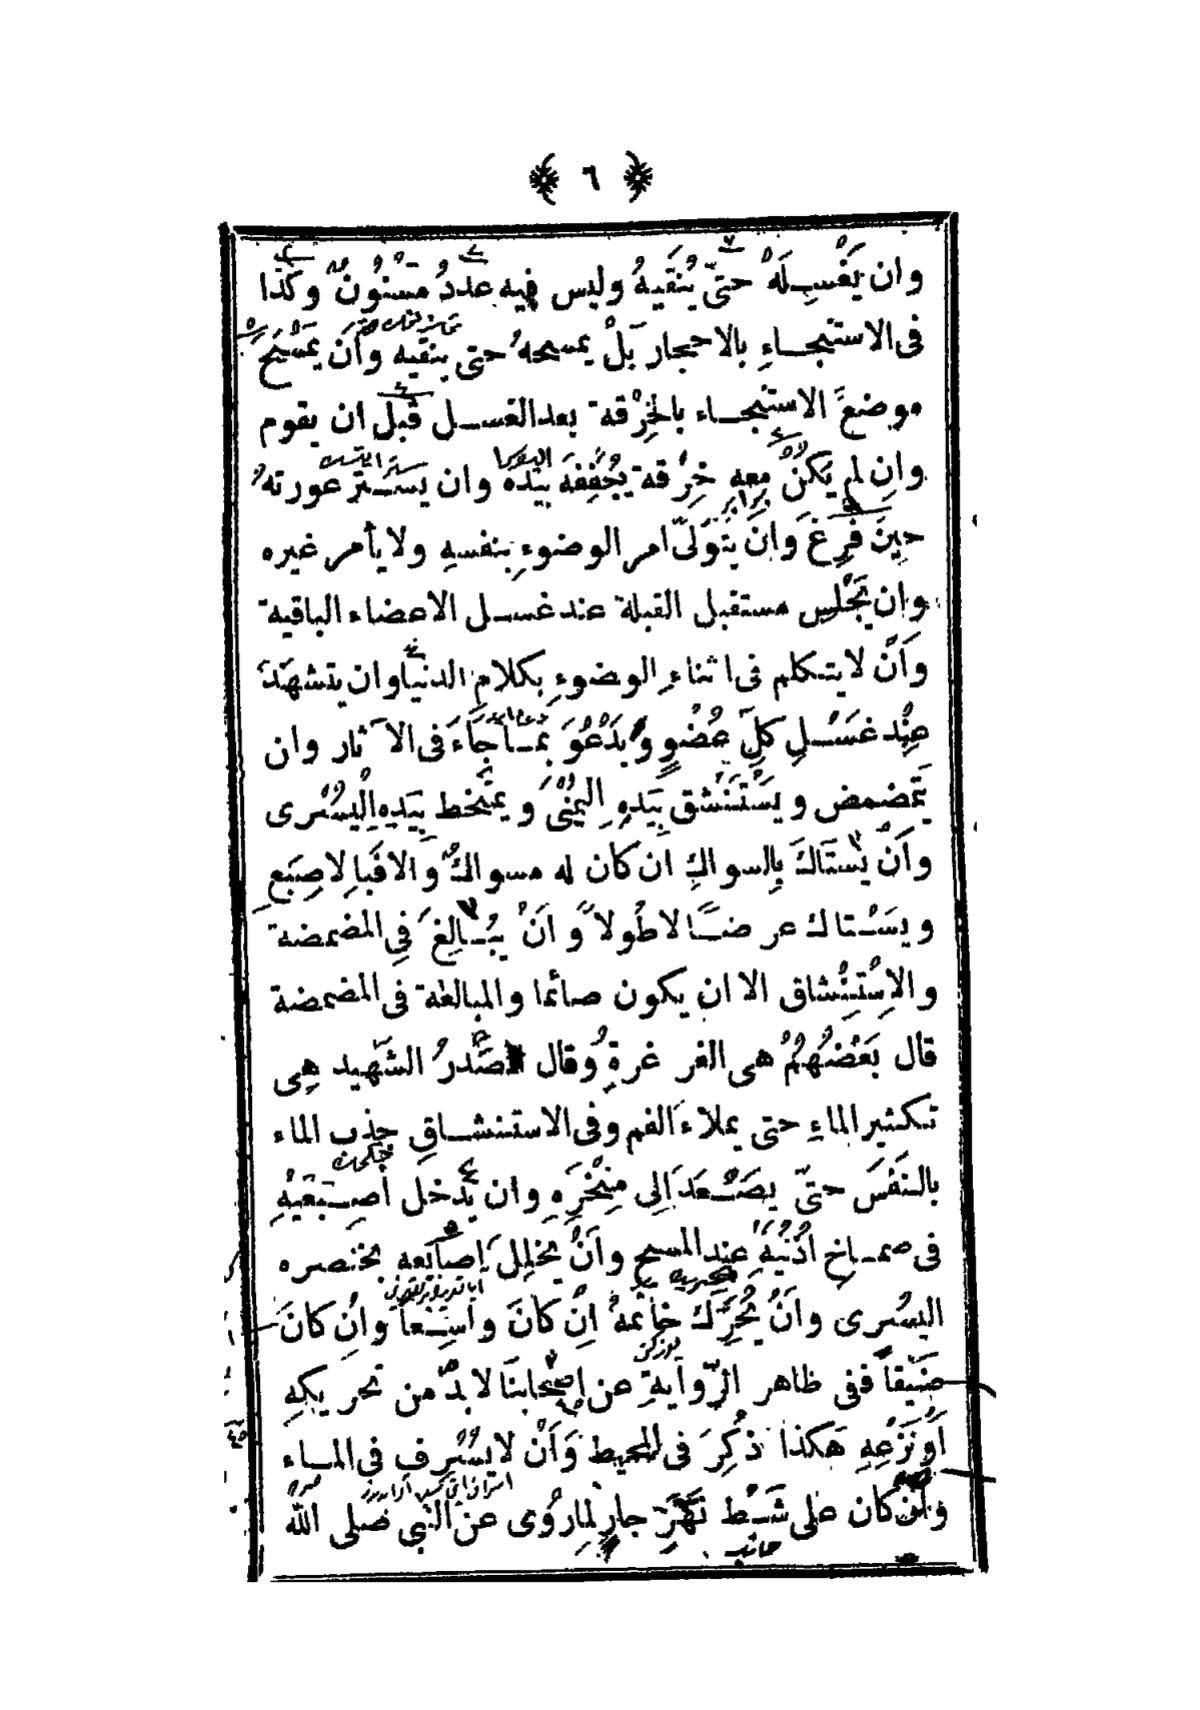 ﴿ ٦ ﴾
وان يَغْسِلَهُ حتىّ يُنْقَيهُ وليس فيه عددُ مسْنُونٌ وكَذا
فى الاستنجاءِ بالاحجار بَلْ يمسحهُ حتى ينقيه واَن يَمْسَحَ
موضعَ الاستنجاء بالخِرْقة بعد الغسل قَبلَ ان يقوم
وانِ لم يكنْ معه خِرْقة يُجفِفهَ بيَدْه وان يستر عورته
حينَ فرغَ وانَ يَتَولىّ امر الوضوءِ بنفسهِ ولا يأمر غيره
وان يَجْلِس مستقبل القبلة عند غسل الاعضاء الباقية
واَنْ لا يتكلم فى اثناءِ الوضوءِ بكلامِ الدنيا وان يتشهدَ
عِنْد غسْلِ كلّ عُضْوٍ ويَدْعُوَ بمَا جَاءَ فى الآثار وان
يَتمضمض ويسْتَنْشق بيَدهِ اليمْنىَ ويمتخط بيَدهِ اليُسْرى
واَنْ يَسْتاكَ بالسواكِ ان كان له مسواكٌ والا فَبالاصِبَع
ويسْتاك عرضًا لا طُولاً واَنْ يُبالِغَ فىِ المضمضة
والاسْتِنْشاق الا ان يكون صائما والمبالغة فى المضمضة
قال بَعْضُهُمْ هى الغرغرةُ وقال صَدْرُ الشَهيد هِى
تكثير الماءِ حتى يملاءَ الفم وفى الاستنشاقِ جذب الماء
بالنَفَس حتىّ يصْعَدَ اِلى مِنْخَرِهِ وان يُدْخل اُصِبَعَيْهِ
فى صماخِ اُذُنْيهِ عند المسح واَنْ يخلِلَ اصابَعه بخنصره
اليُسْرى واَنْ يُحَرِّكَ خاتمهُ اِنْ كانَ واسِعاً وانِْ كانَ
ضَيقاً ففى ظاهر الرّوايةِ عن اصحابنَا لا بدّ من تحريكهِ
اَوْ نَزْعِهِ هَكذا ذُكِرَ فى المحيط وَاَنْ لا يسْرِف فى الماء
وان كان على شَطّ نَهَرٍ جارٍ لما رُوى عن النبى صَلى الله
جانب